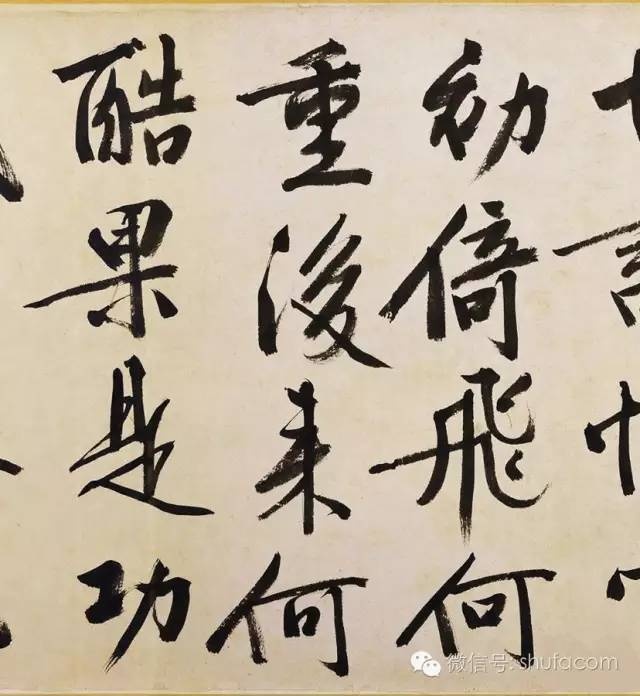 初倚飛何
重後来何
酷果是功
微信号: shufacom